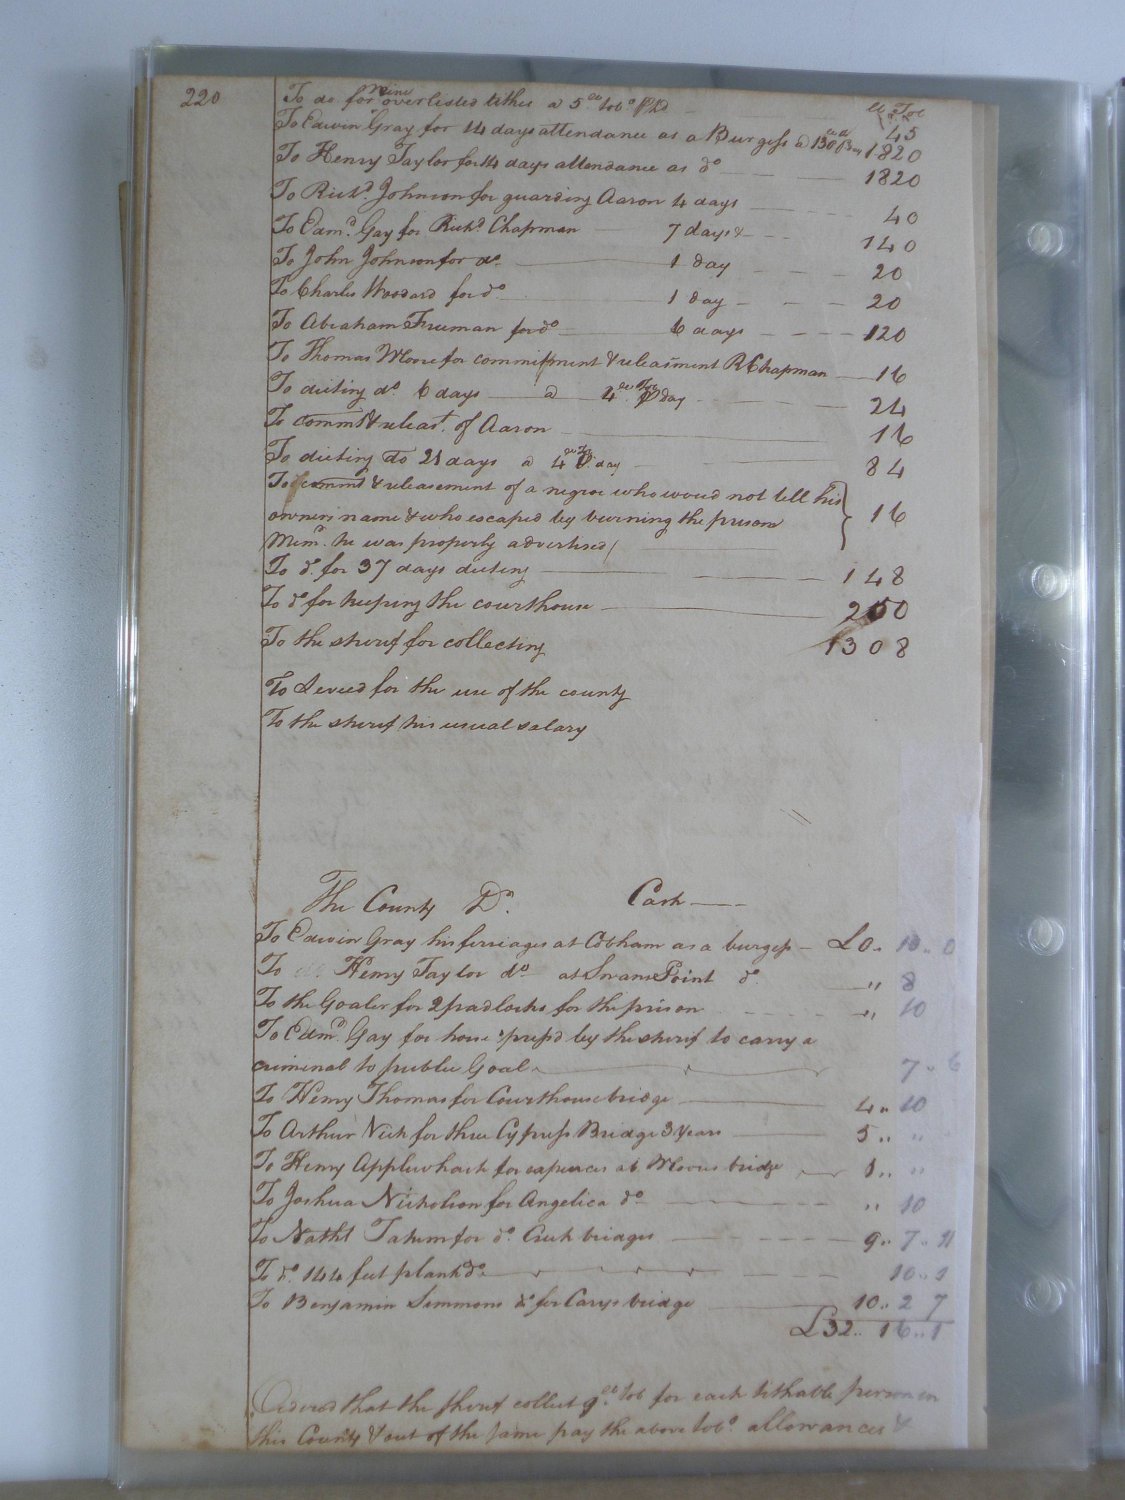 220
lb Tob
To do for nine overlisted tithes a 5 lb tobo
45
To Edwin Gray for 14 days attendance as a Burgess a 130 1820
To Henry Taylor for 14 days attendance as do 1820
To Richd Johnson for guarding Aaron 4 days 40
To Edmd Gay for Richd Chapman 7 days 140
To John Johnson for do 1 day 20
To Charles Woodard for do 1 day 20
To Abraham Freeman for do 6 days 120
To Thomas Moore for commitment & releasment R Chapman 16
To dieting do 6 days a 4 day 24
To commt & releast. of Aaron 16
To dieting do 21 days a 4 day 84
To commt & releasement of a negroe who woud not tell his
owners name & who escaped by burning the prison 16
Memd. he was properly advertised
To do for 37 days dieting 148
To do for keeping the courthouse 250
To the sherif for collecting 1308
To Levied for the use of the county
To the sherif his usual salary
The County Dr. Cash
To Edwin Gray his ferriages at Cobham as a burgess £0.. 10.. 0
To Henry Taylor do at Swans Point do. " 8
To the Goaler for 2 padlocks for the prison " 10
To Edmd. Gay for horse presd by the sherif to carry a
criminal to public Goal 7.. 6
To Henry Thomas for Courthouse bridge 4.. 10
To Arthur Vick for three Cypress Bridge 3 Years 5.. "
To Henry Applewhaite for expences at Moores bridge 1.. "
To Joshua Nicholson for Angelica do " 10
To Nathl Tatum for do. Creek bridges 9.. 7.. 11
To do. 144 feet plank do. 10.. 1
To Benjamin Simmons do for Carys bridge 10.. 2 7
£32.. 16.. 1
Ordered that the sherif collect 9 lb tob for each tithable person in
this County & out of the same pay the above tobo allowances &